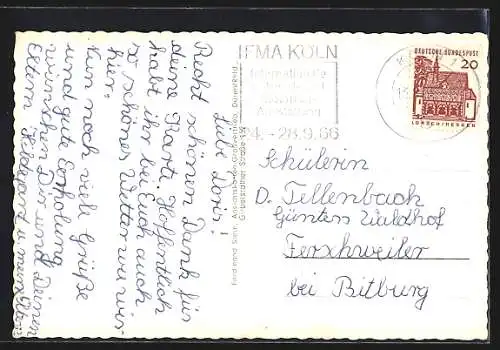 Liebe Doris!
Recht schönen Dank für
deine Karte. Hoffentlich
habt ihr bei Euch auch
so schönes Wetter wie wir
hier.
Nun noch viele Grüße
und gute Erholung
wünschen Dir und Deinen
Eltern Hildegard u. meine Eltern
IFMA KÖLN
Internationale
Ausstellung
24.-28.9.66
DEUTSCHE BUNDESPOST
20
LORSCH/HESSEN
Schülerin
D. Tellenbach
Günten Waldhof
Ferschweiler
bei Bitburg